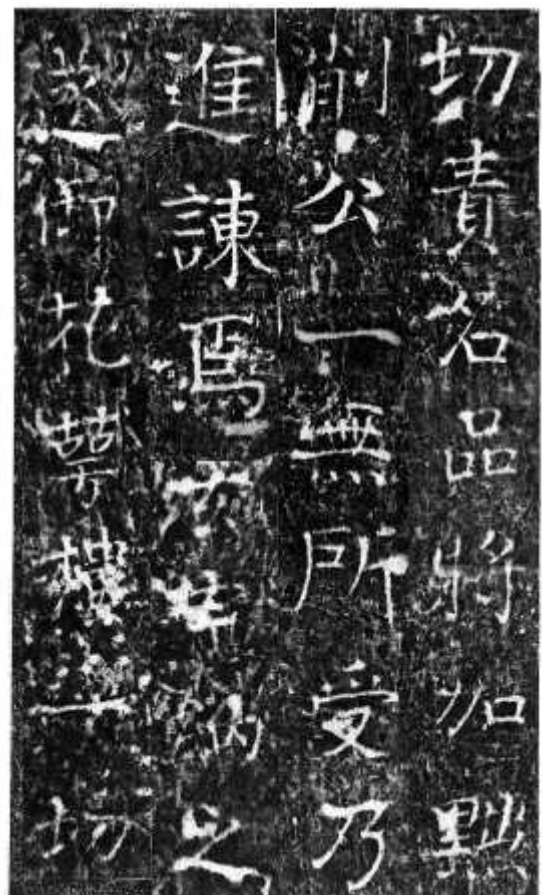 切責名品將加黜
削公一無所受乃
進諫焉納之
御花萼樓一場